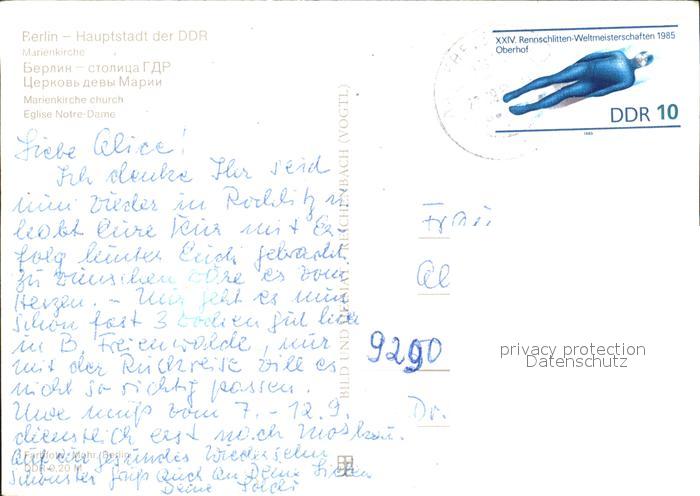 Berlin – Hauptstadt der DDR
Marienkirche
Берлин – столица ГДР
Церковь девы Марии
Marienkirche church
Eglise Notre-Dame
XXIV. Rennschlitten-Weltmeisterschaften 1985
Oberhof
DDR 10
1985
Liebe Alice!
Ich denke Ihr seid
nun wieder in Rochlitz u.
habt Eure Kur mit Er-
folg hinter Euch gebracht.
zu wünschen wäre es vom
Herzen. – Mir geht es nun
schon fast 3 Wochen gut hier
in B. Freienwalde, nur
mit der Rückreise will es
nicht so richtig passen.
Uwe muß vom 7. – 12.9.
dienstlich erst nach Moskau.
Auf ein gesundes Wiedersehn
Schönster Gruß auch an Deine Lieben
Deine
BILD UND REICHENBACH (VOGTL)
Frau
Al
9290
Dr.
privacy protection
Datenschutz
Farbfoto: Mohr, Berlin
DDR 0,20 M